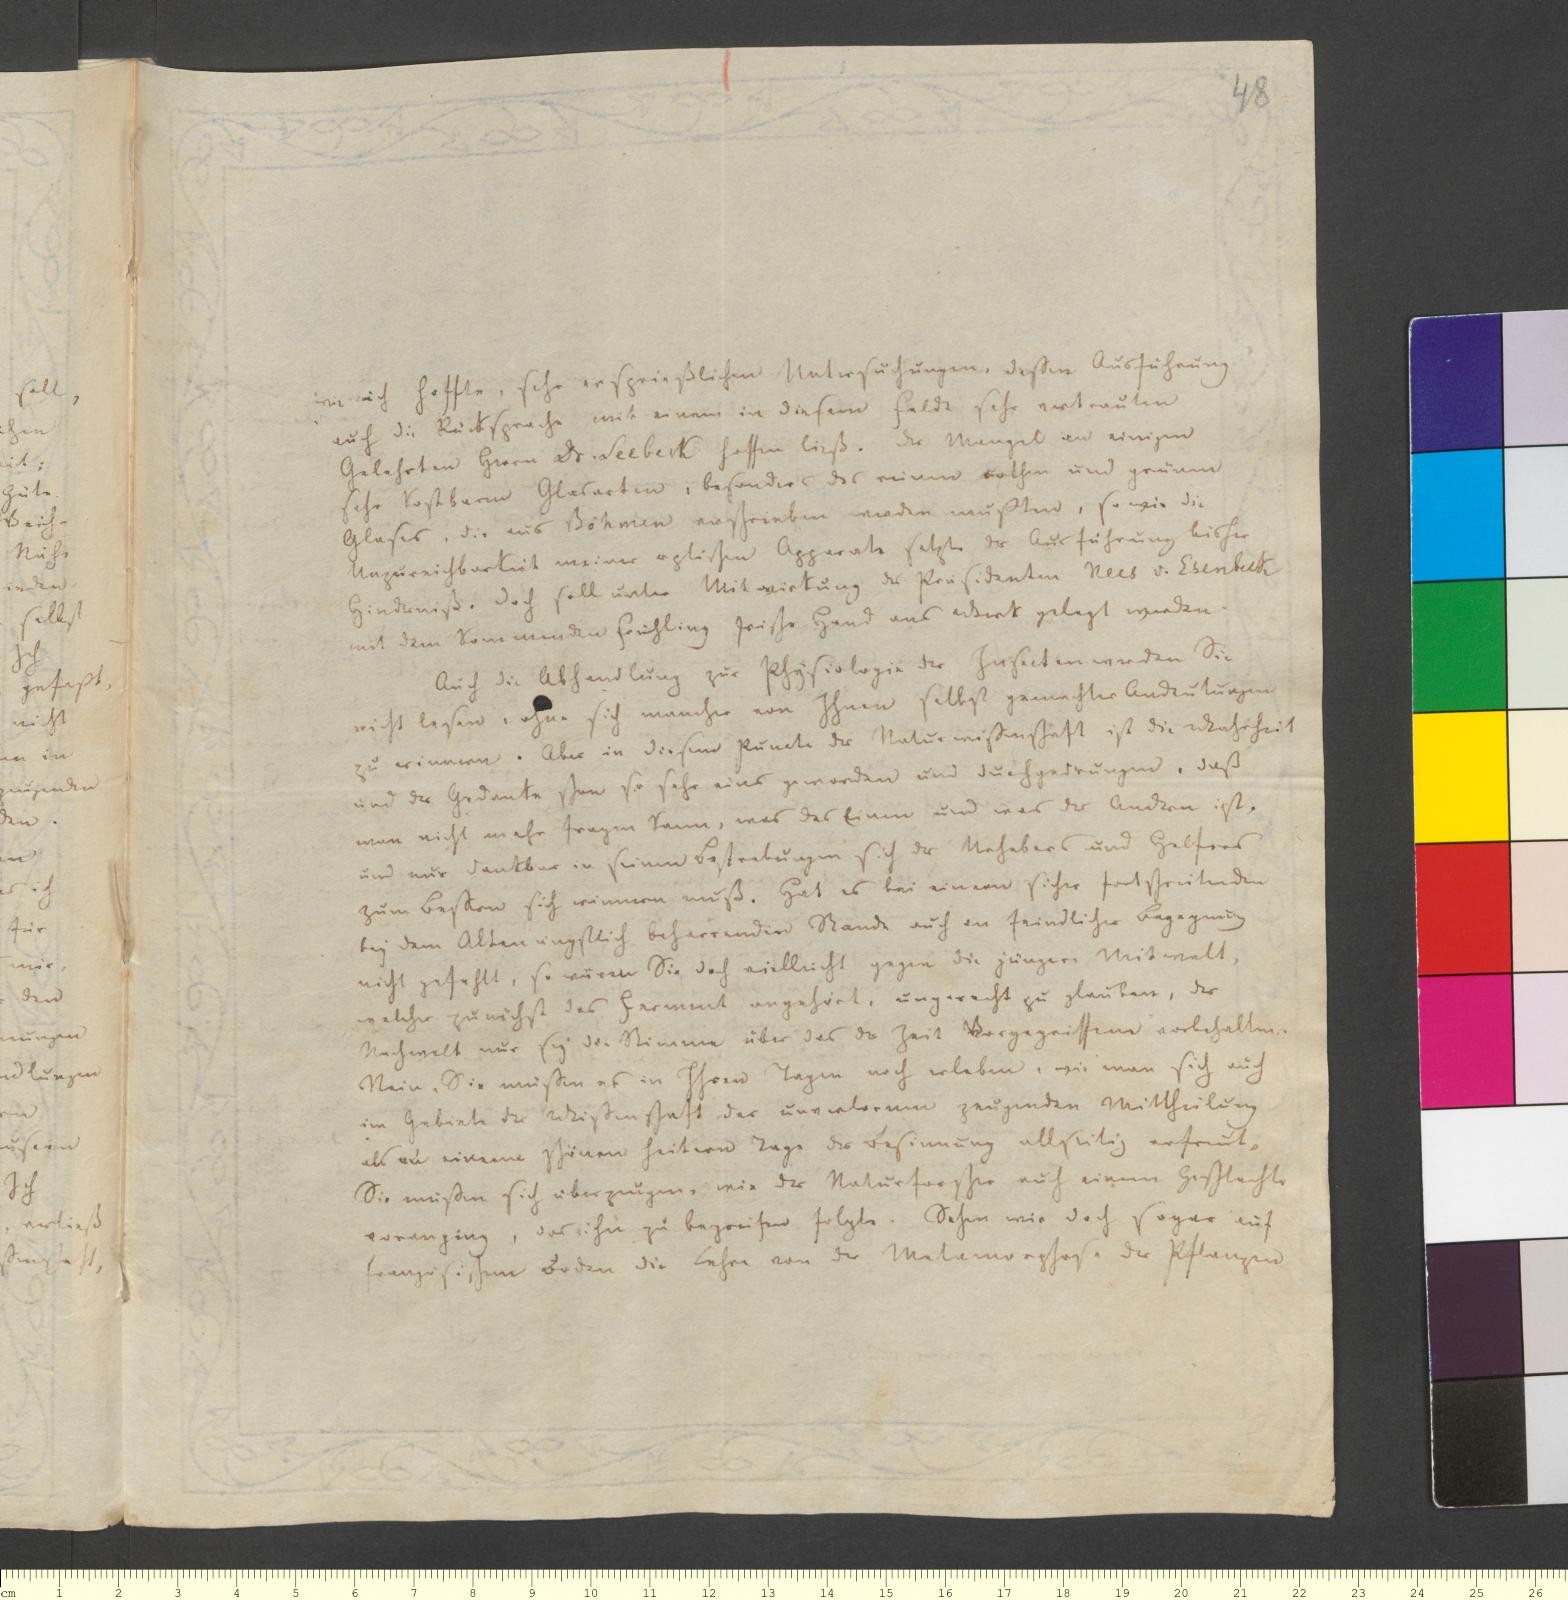 48
wie ich hoffte, sehr ersprießlichen Untersuchungen, dessen Ausführung
auch die Rücksprache mit einem in diesem Felde sehr vertrauten
Gelehrten Herrn Dr. Seebeck hoffen ließ. Der Mangel an einigen
sehr kostbaren Glasarten, besonders des reinen rothen und grünen
Glases, die aus Böhmen verschrieben werden mußten, so wie die
Unzureichbarkeit meiner optischen Apparate setzte der Ausführung bisher
Hinderniß. Doch soll unter Mitwirkung des Präsidenten Nees v. Esenbeck
mit dem kommenden Frühling frische Hand ans Werk gelegt werden.
Auch die Abhandlung zur Physiologie der Insecten werden Sie
nicht lesen, ohne sich mancher von Ihnen selbst gemachter Andeutungen
zu erinnern. Aber in diesem Puncte der Naturwissenschaft ist die Wahrheit
und der Gedanke schon so sehr eins geworden und durchgedrungen, daß
man nicht mehr fragen kann, was des Einen und was des Andern ist,
und nur dankbar in seinen Bestrebungen sich des Urhebers und Helfers
zum Bessern sich erinnern muß. Hat es bei einem sicher fortschreitenden
bey dem Alten ängstlich beharrenden Stande auch an feindlicher Begegnung
nicht gefehlt, so wären Sie doch vielleicht gegen die jüngere Mitwelt,
welcher zunächst das Ferment angehört, ungerecht zu glauben, der
Nachwelt nur sey die Stimme über das der Zeit Vorgegriffene vorbehalten.
Nein, Sie müssen es in Ihren Tagen noch erleben, wie man sich auch
im Gebiete der Wissenschaft der unverlornen zeugenden Mittheilung
als an einem schönen heitern Tage der Besinnung allseitig erfreut.
Sie müssen sich überzeugen, wie der Naturforscher auch einem Geschlechte
voranging, das ihn zu begreifen folgte. Sehen wir doch sogar auf
französischem Boden die Lehre von der Metamorphose der Pflanzen